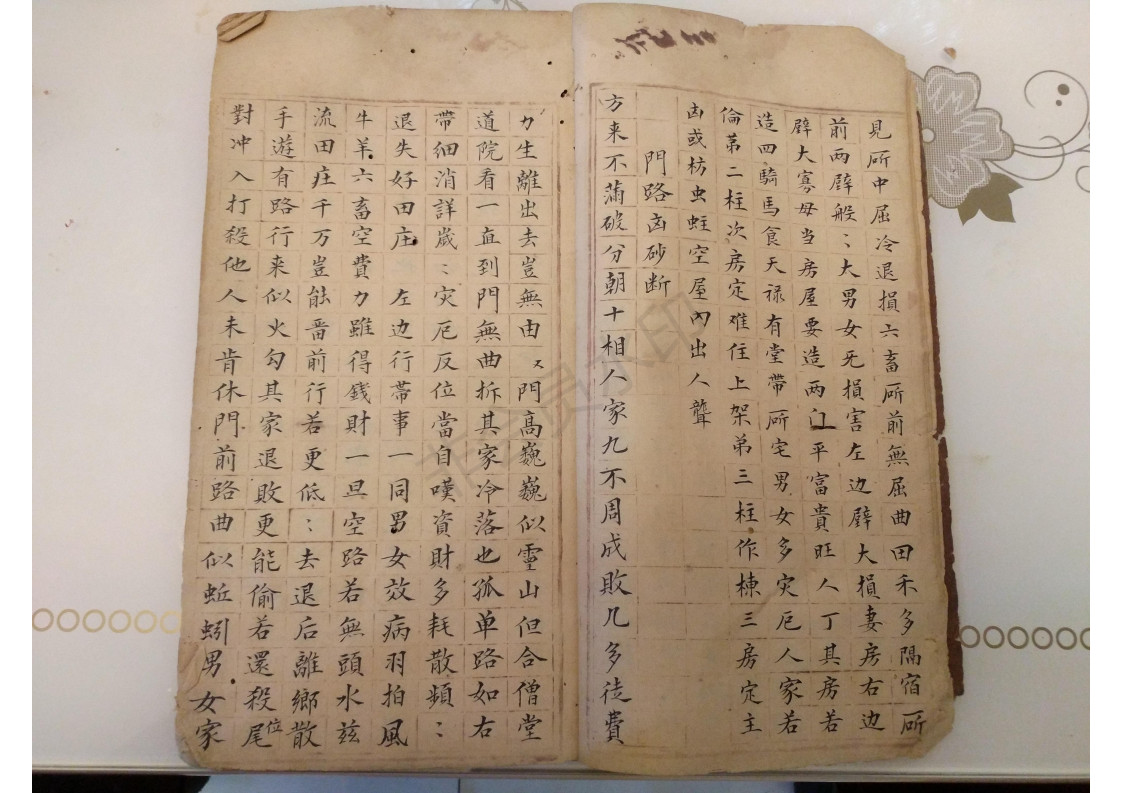 見所中屈冷退損六畜所前無屈曲田禾多隔宿所
前两壁般〻大男女旡損害左边壁大損妻房右边
壁大寡母当房屋要造两江平富貴旺人丁其房若
造四騎馬食天禄有堂帶所宅男女多灾厄人家若
倫第二柱次房定难住上架弟三柱作棟三房定主
凶或枋虫蛀空屋内出人聾
門路凶砂断
方来不蒲破分朝十相人家九不周成敗几多徒費
力生離出去豈無由又門高巍巍似靈山但合僧堂
道院看一直到門無曲拆其家冷落也孤单路如右
帶细消詳歲〻灾厄反位當自嘆資財多耗散頻〻
退失好田庄 左边行帯事一同男女效病羽拍風
牛羊六畜空費力雖得錢財一旦空路若無頭水兹
流田庄千万豈能啬前行若更低〻去退后離鄉散
手遊有路行来似火勾其家退敗更能偷若還殺尾位
對冲入打殺他人未肯休門前路曲似蚯蚓男女家